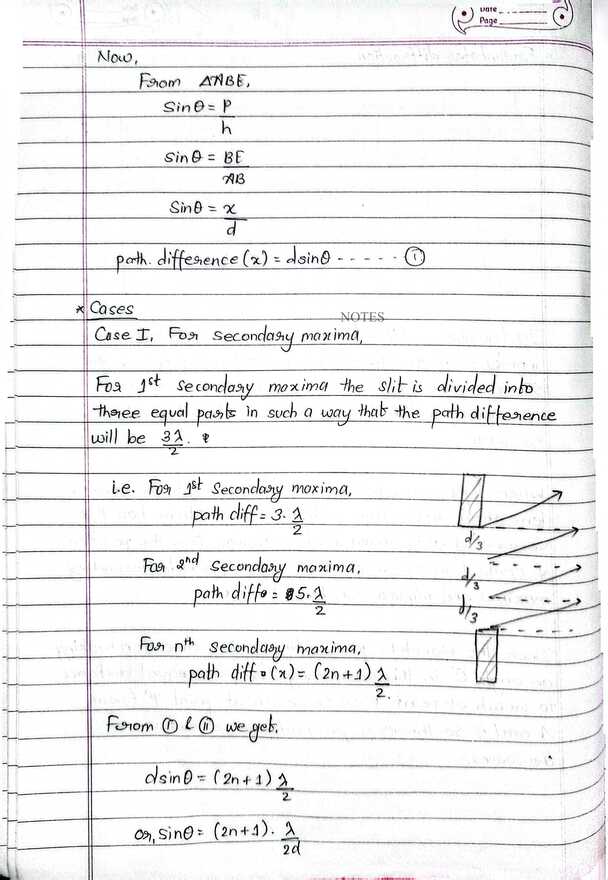 Date
Page
Now,
From ΔABE,
Sinθ = P/h
sinθ = BE/AB
Sinθ = x/d
path. difference (x) = dsinθ ----- (i)
* Cases
NOTES
Case I, For secondary maxima,
For 1st secondary maxima the slit is divided into
three equal parts in such a way that the path difference
will be 3λ/2.
i.e. For 1st Secondary maxima,
path diff = 3. λ/2
d/3
For 2nd Secondary maxima,
d/3
path diff. = 5. λ/2
d/3
For nth secondary maxima,
path diff. (x) = (2n+1) λ/2.
From (i) & (ii) we get,
dsinθ = (2n+1) λ/2
or, sinθ = (2n+1). λ/2d